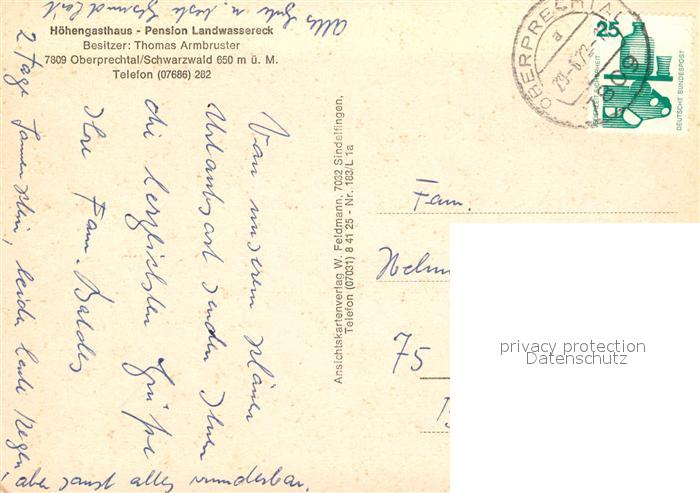 Alles Gute u. beste Gesundheit
Höhengasthaus - Pension Landwassereck
Besitzer: Thomas Armbruster
7809 Oberprechtal/Schwarzwald 650 m ü. M.
Telefon (07686) 282
Von unserem schönen
Urlaubsort senden Ihnen
die herzlichsten Grüße
Ihre Fam. Baldes
2 Tage Sonnenschein, leider heute Regen,
aber sonst alles wunderbar.
Ansichtskartenverlag W. Feldmann, 7032 Sindelfingen,
Telefon (07031) 8 41 25 - Nr. 183/L 1a
OBERPRECHTAL
a
29.-6.72
7809
25
DEUTSCHE BUNDESPOST
Fam.
Helm
75
privacy protection
Datenschutz